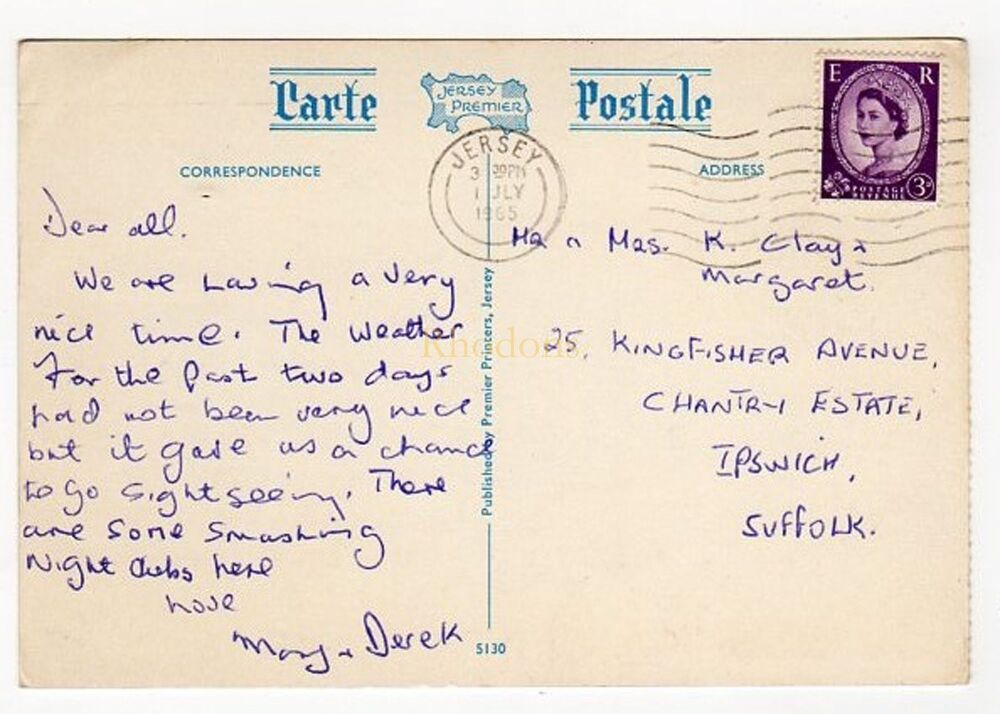 Carte Postale
JERSEY
PREMIER
CORRESPONDENCE
ADDRESS
E R
POSTAGE
REVENUE
3D
JERSEY
3 30PM
1 JLY
1965
Dear all.
We are having a very
nice time. The weather
for the past two days
had not been very nice
but it gave us a chance
to go sightseeing. There
are some smashing
Night clubs here
Love
Mary & Derek
Mr & Mrs. K. Clay &
Margaret.
25, KINGFISHER AVENUE,
CHANTRY ESTATE,
IPSWICH,
SUFFOLK.
Published by Premier Printers, Jersey
5130
Rhodons